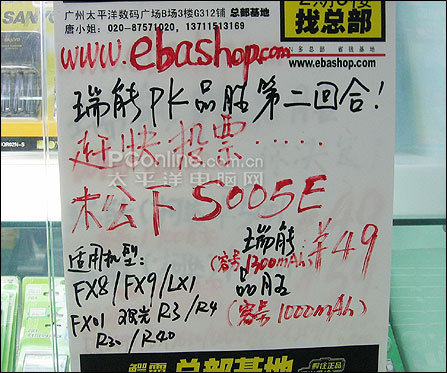 广州太平洋数码广场B场3楼G312铺 总部基地
唐小姐: 020-87571020, 13711513169
找总部
www.ebashop.com
www.ebashop.com
SANYO
瑞能PK品胜第二回合!
赶快投票.....
PConline.com.cn
太平洋电脑网
松下 S005E
瑞能 ¥49
(容量1300mAh)
品胜
(容量1000mAh)
适用机型:
FX8/FX9/LX1
FX01 理光 R3/R4
R30/R40
总部基地